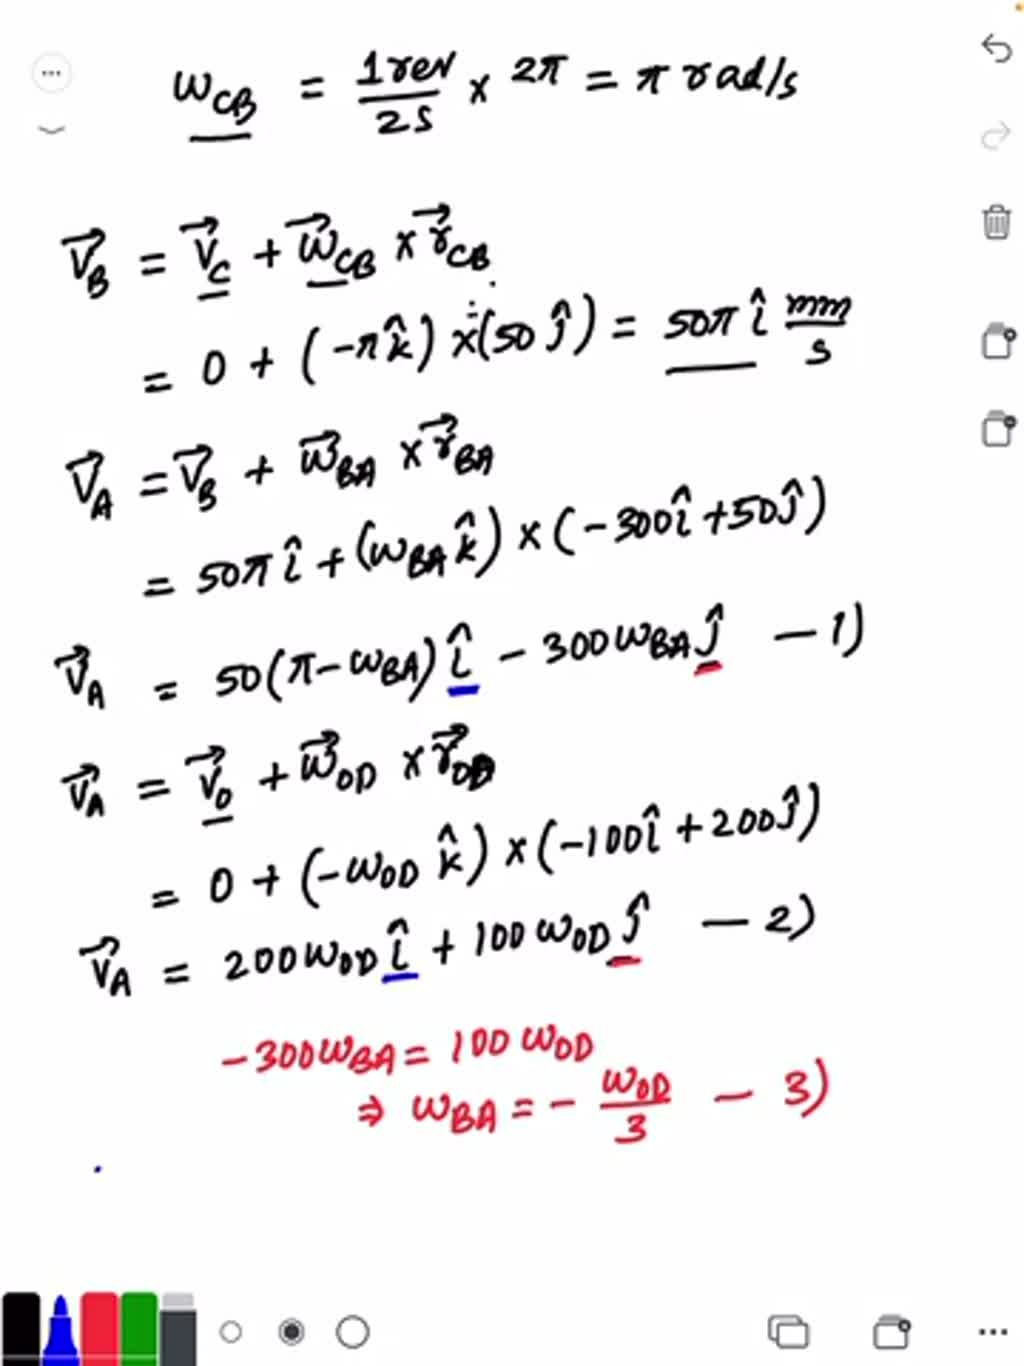 ω_CB = 1 rev/2s × 2π = π rad/s
V⃗_B = V⃗_C + ω⃗_CB × r⃗_CB
= 0 + (-π k̂) × (50 ĵ) = 50π î mm/s
V⃗_A = V⃗_B + ω⃗_BA × r⃗_BA
= 50π î + (ω_BA k̂) × (-300 î + 50 ĵ)
V⃗_A = 50(π - ω_BA) î - 300 ω_BA ĵ — 1)
V⃗_A = V⃗_O + ω⃗_OD × r⃗_OD
= 0 + (-ω_OD k̂) × (-100 î + 200 ĵ)
V⃗_A = 200 ω_OD î + 100 ω_OD ĵ — 2)
-300 ω_BA = 100 ω_OD
⇒ ω_BA = - ω_OD/3 — 3)